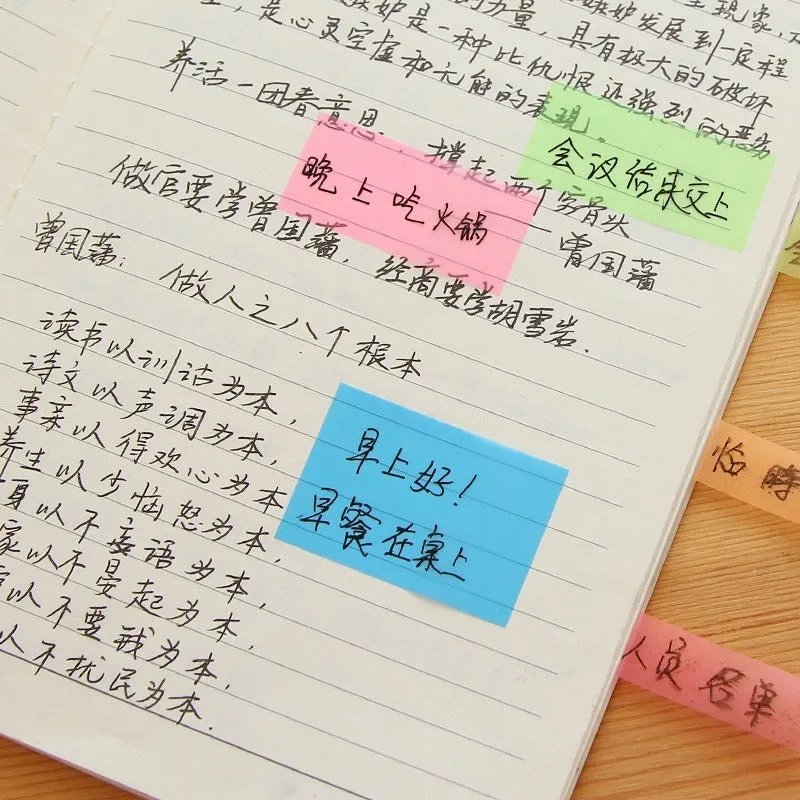 现象,
嫉妒发展到一定程
的力量,具有极大的破坏
嫉妒是一种比仇恨还强烈的恶劣
,是心灵空虚和无能的表现。
养活一团春意思,撑起两个穷骨头
——曾国藩
做官要学曾国藩,经商要学胡雪岩.
曾国藩:做人之八个根本
读书以训诂为本,
诗文以声调为本,
事亲以得欢心为本
养生以少恼怒为本,
身以不妄语为本,
家以不晏起为本,
以不要钱为本,
以不扰民为本.
会议结束交上
晚上吃火锅
早上好!
早餐在桌上
临时
人员名单